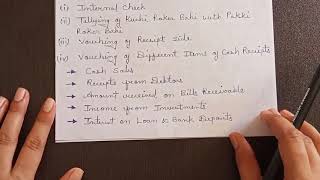 (i) Internal Check
(ii) Tallying of Kuchi Rokar Bahi with Pakki
Rokar Bahi
(iii) Vouching of Receipt Side
(iv) Vouching of Different Items of Cash Receipts
→ Cash Sales
→ Receipts from Debtors
→ Amount received on Bills Receivable
→ Income from Investments
→ Interest on Loan & Bank Deposits